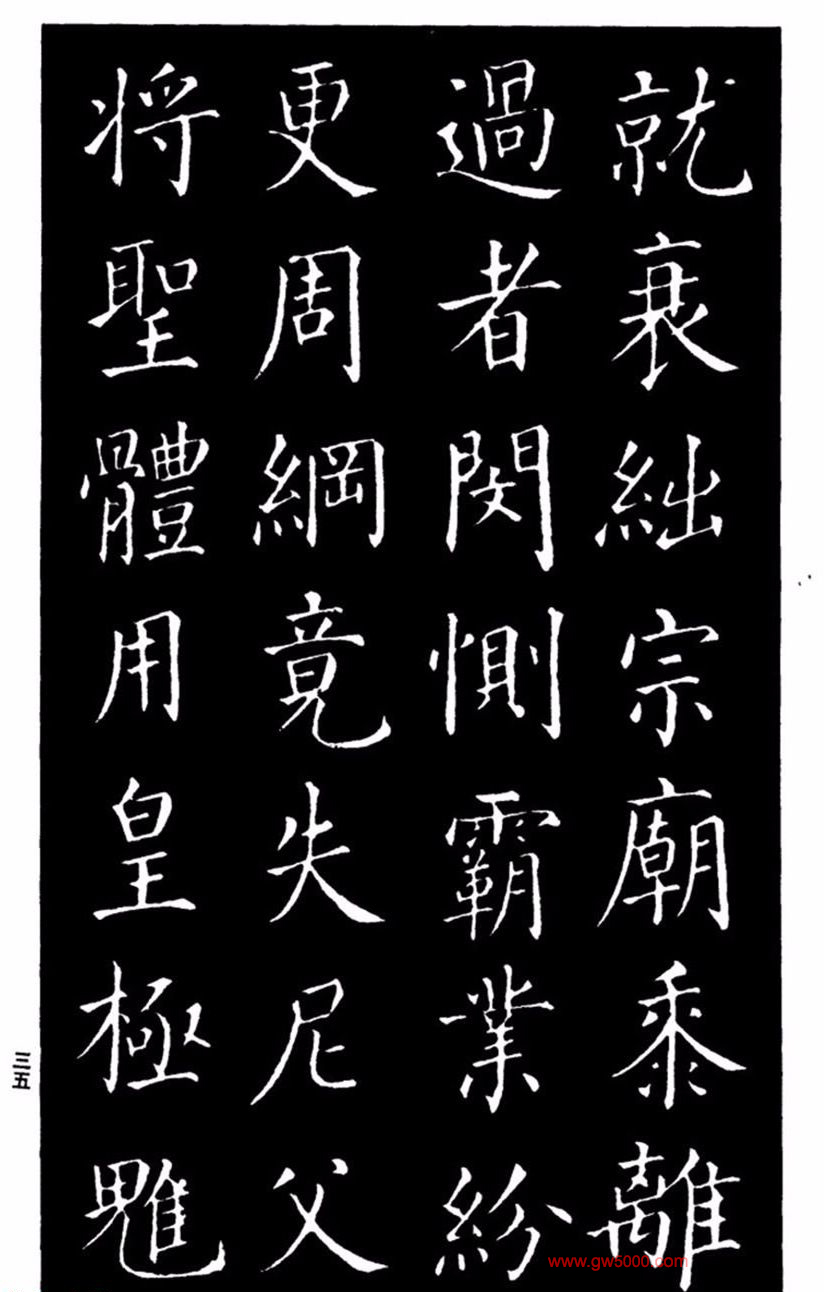 就衰絀宗廟黍離
過者閔惻霸業紛
更周綱竟失尼父
将聖體用皇極
三五
www.gw5000.com